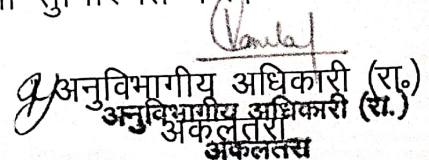 अनुविभागीय अधिकारी (रा०)
अनुविभागीय अधिकारी (रा.)
अकलतरा
अकलतरा